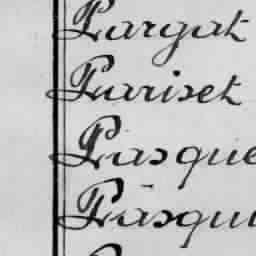 Pargat
Pariset
Pasque
Pasqui